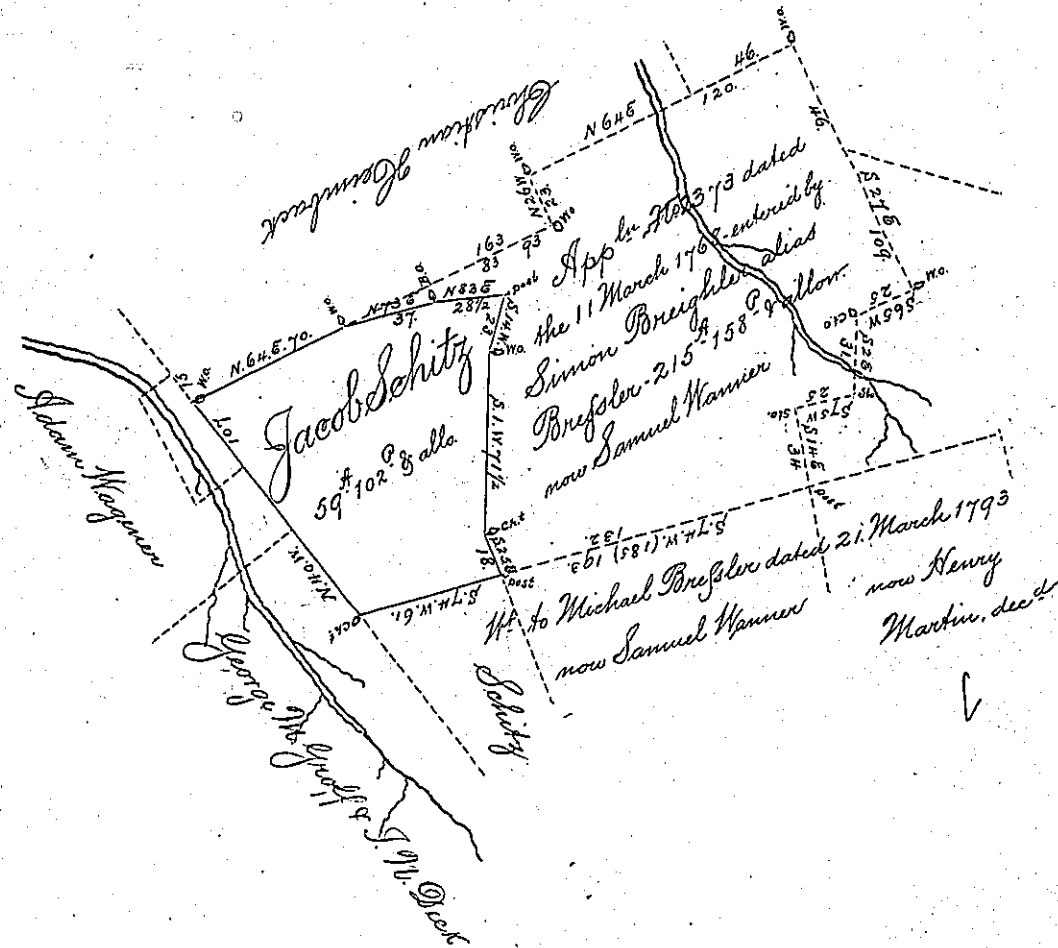 Christian Heimback
W.O.
46.
120.
N64E
W.O.
N26W
23
W.O.
46.
S27E
109.
W.O.
S65W
25
C.O.
S26E
31
S75W
25
Sta.
S14E
34
Post
163
83
93
B.O.
N83E
28½
Post
N73E
37.
W.O.
N.64.E.70.
W.O.
75
107
N40W.
S.14.W.
23
W.O.
S.1.W.71½
Cht
S25E
18
Post
S.74.W.61.
Cht
S.74.W. (185) 193
132.
Jacob Schitz
59A. 102P. & allo.
Appln No 2373 dated
the 11 March 1768 entered by
Simon Breighler alias
Bressler - 215A 158P & allow.
now Samuel Wanner
Wt to Michael Bressler dated 21. March 1793
now Samuel Wanner
now Henry
Martin, decd
Schitz
Adam Wagener
George M. Groff & J. N. Dick